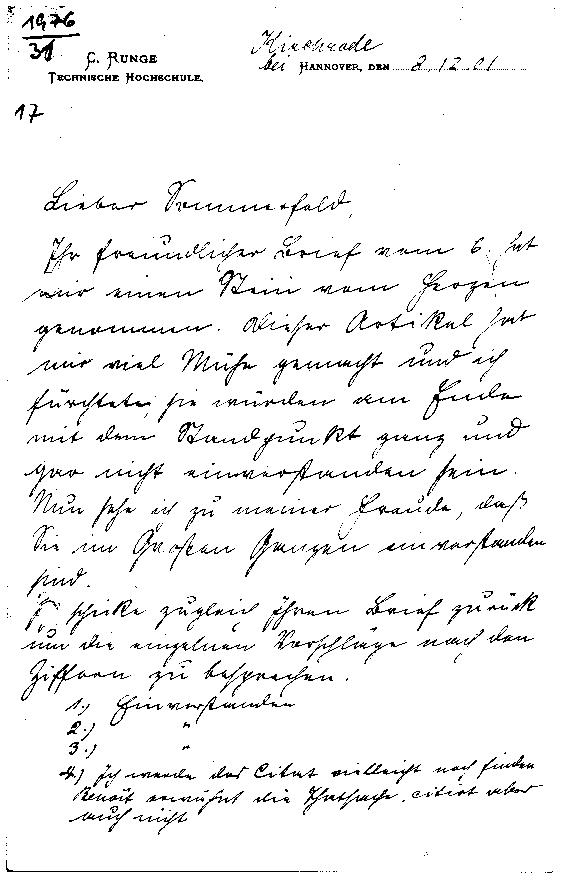 1976
31
C. RUNGE
TECHNISCHE HOCHSCHULE.
Kirchrode
bei HANNOVER, DEN 8.12.01
17
Lieber Sommerfeld,
Ihr freundlicher Brief vom 6. hat
mir einen Stein vom Herzen
genommen. Dieser Artikel hat
mir viel Mühe gemacht und ich
fürchtete, sie würden am Ende
mit dem Standpunkt ganz und
gar nicht einverstanden sein.
Nun sehe ich zu meiner Freude, daß
Sie im Großen Ganzen einverstanden
sind.
schicke zugleich Ihren Brief zurück
um die einzelnen Vorschläge nach den
Ziffern zu besprechen.
1.) Einverstanden
2.) "
3.) "
4.) Ich werde das Citat vielleicht noch finden
Benoit erwähnt die Thatsache, citirt aber
auch nicht